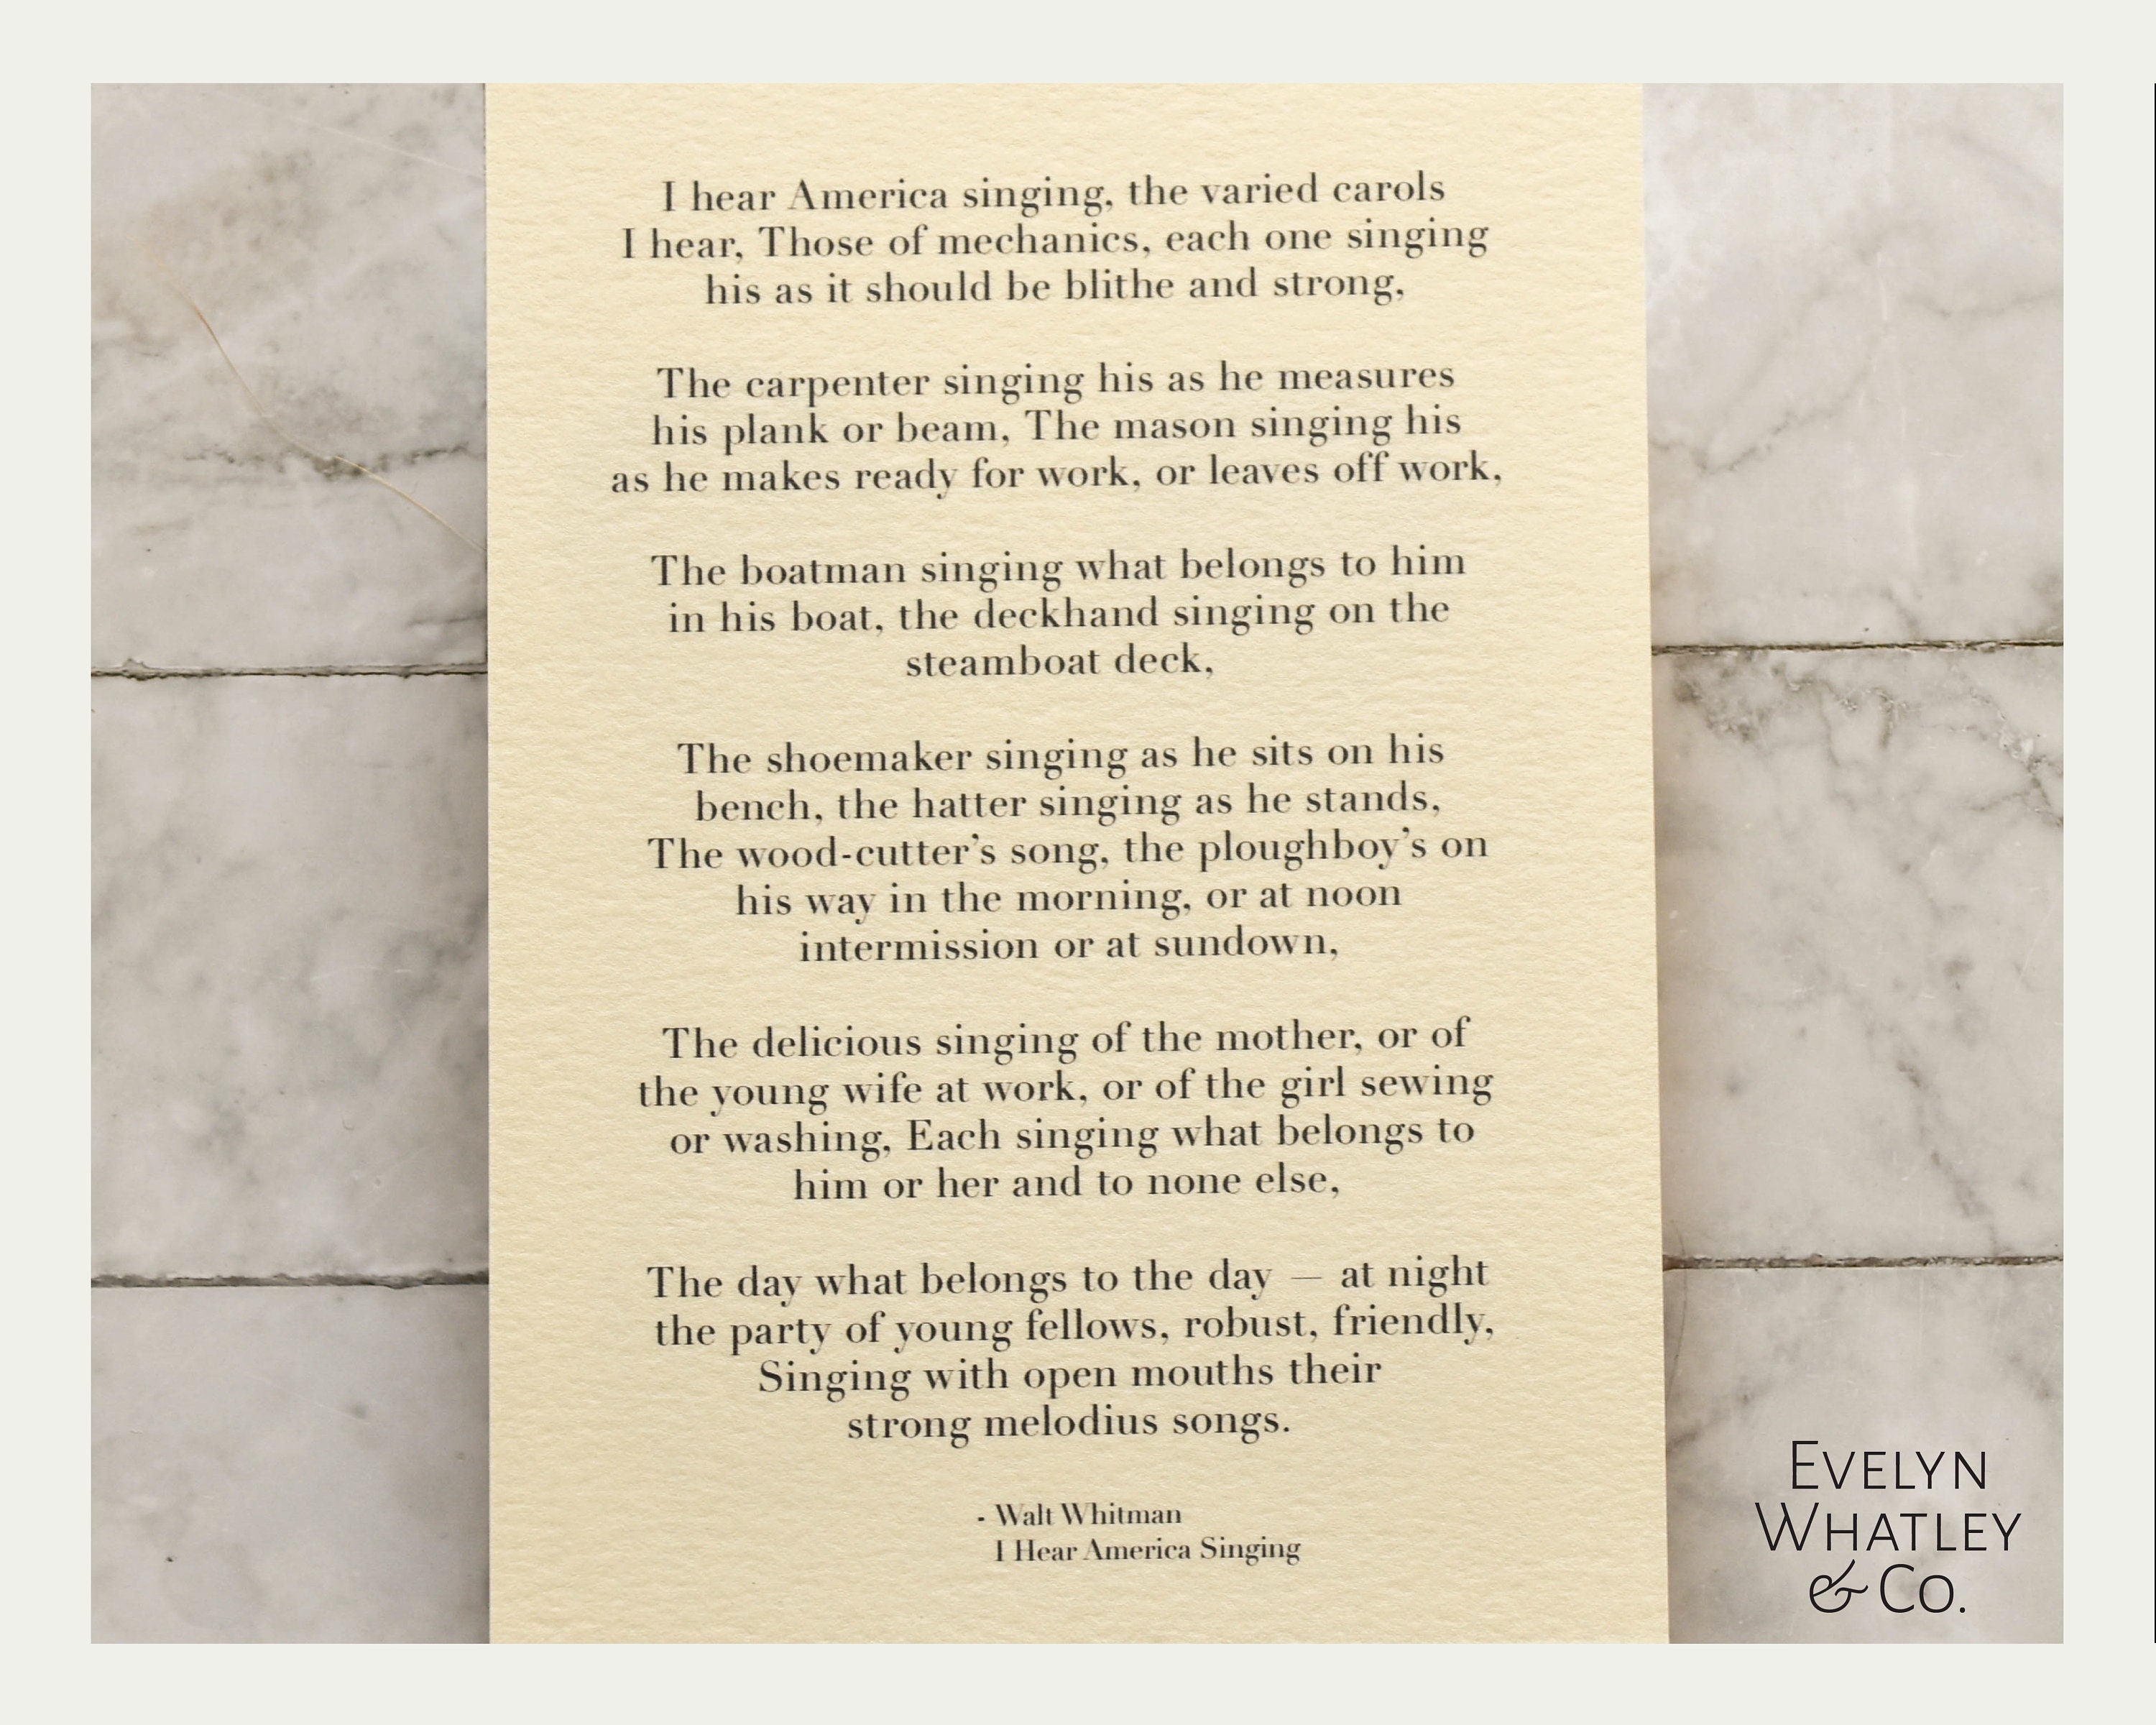 I hear America singing, the varied carols
I hear, Those of mechanics, each one singing
his as it should be blithe and strong,
The carpenter singing his as he measures
his plank or beam, The mason singing his
as he makes ready for work, or leaves off work,
The boatman singing what belongs to him
in his boat, the deckhand singing on the
steamboat deck,
The shoemaker singing as he sits on his
bench, the hatter singing as he stands,
The wood-cutter’s song, the ploughboy’s on
his way in the morning, or at noon
intermission or at sundown,
The delicious singing of the mother, or of
the young wife at work, or of the girl sewing
or washing, Each singing what belongs to
him or her and to none else,
The day what belongs to the day — at night
the party of young fellows, robust, friendly,
Singing with open mouths their
strong melodius songs.
- Walt Whitman
I Hear America Singing
EVELYN
WHATLEY
& CO.